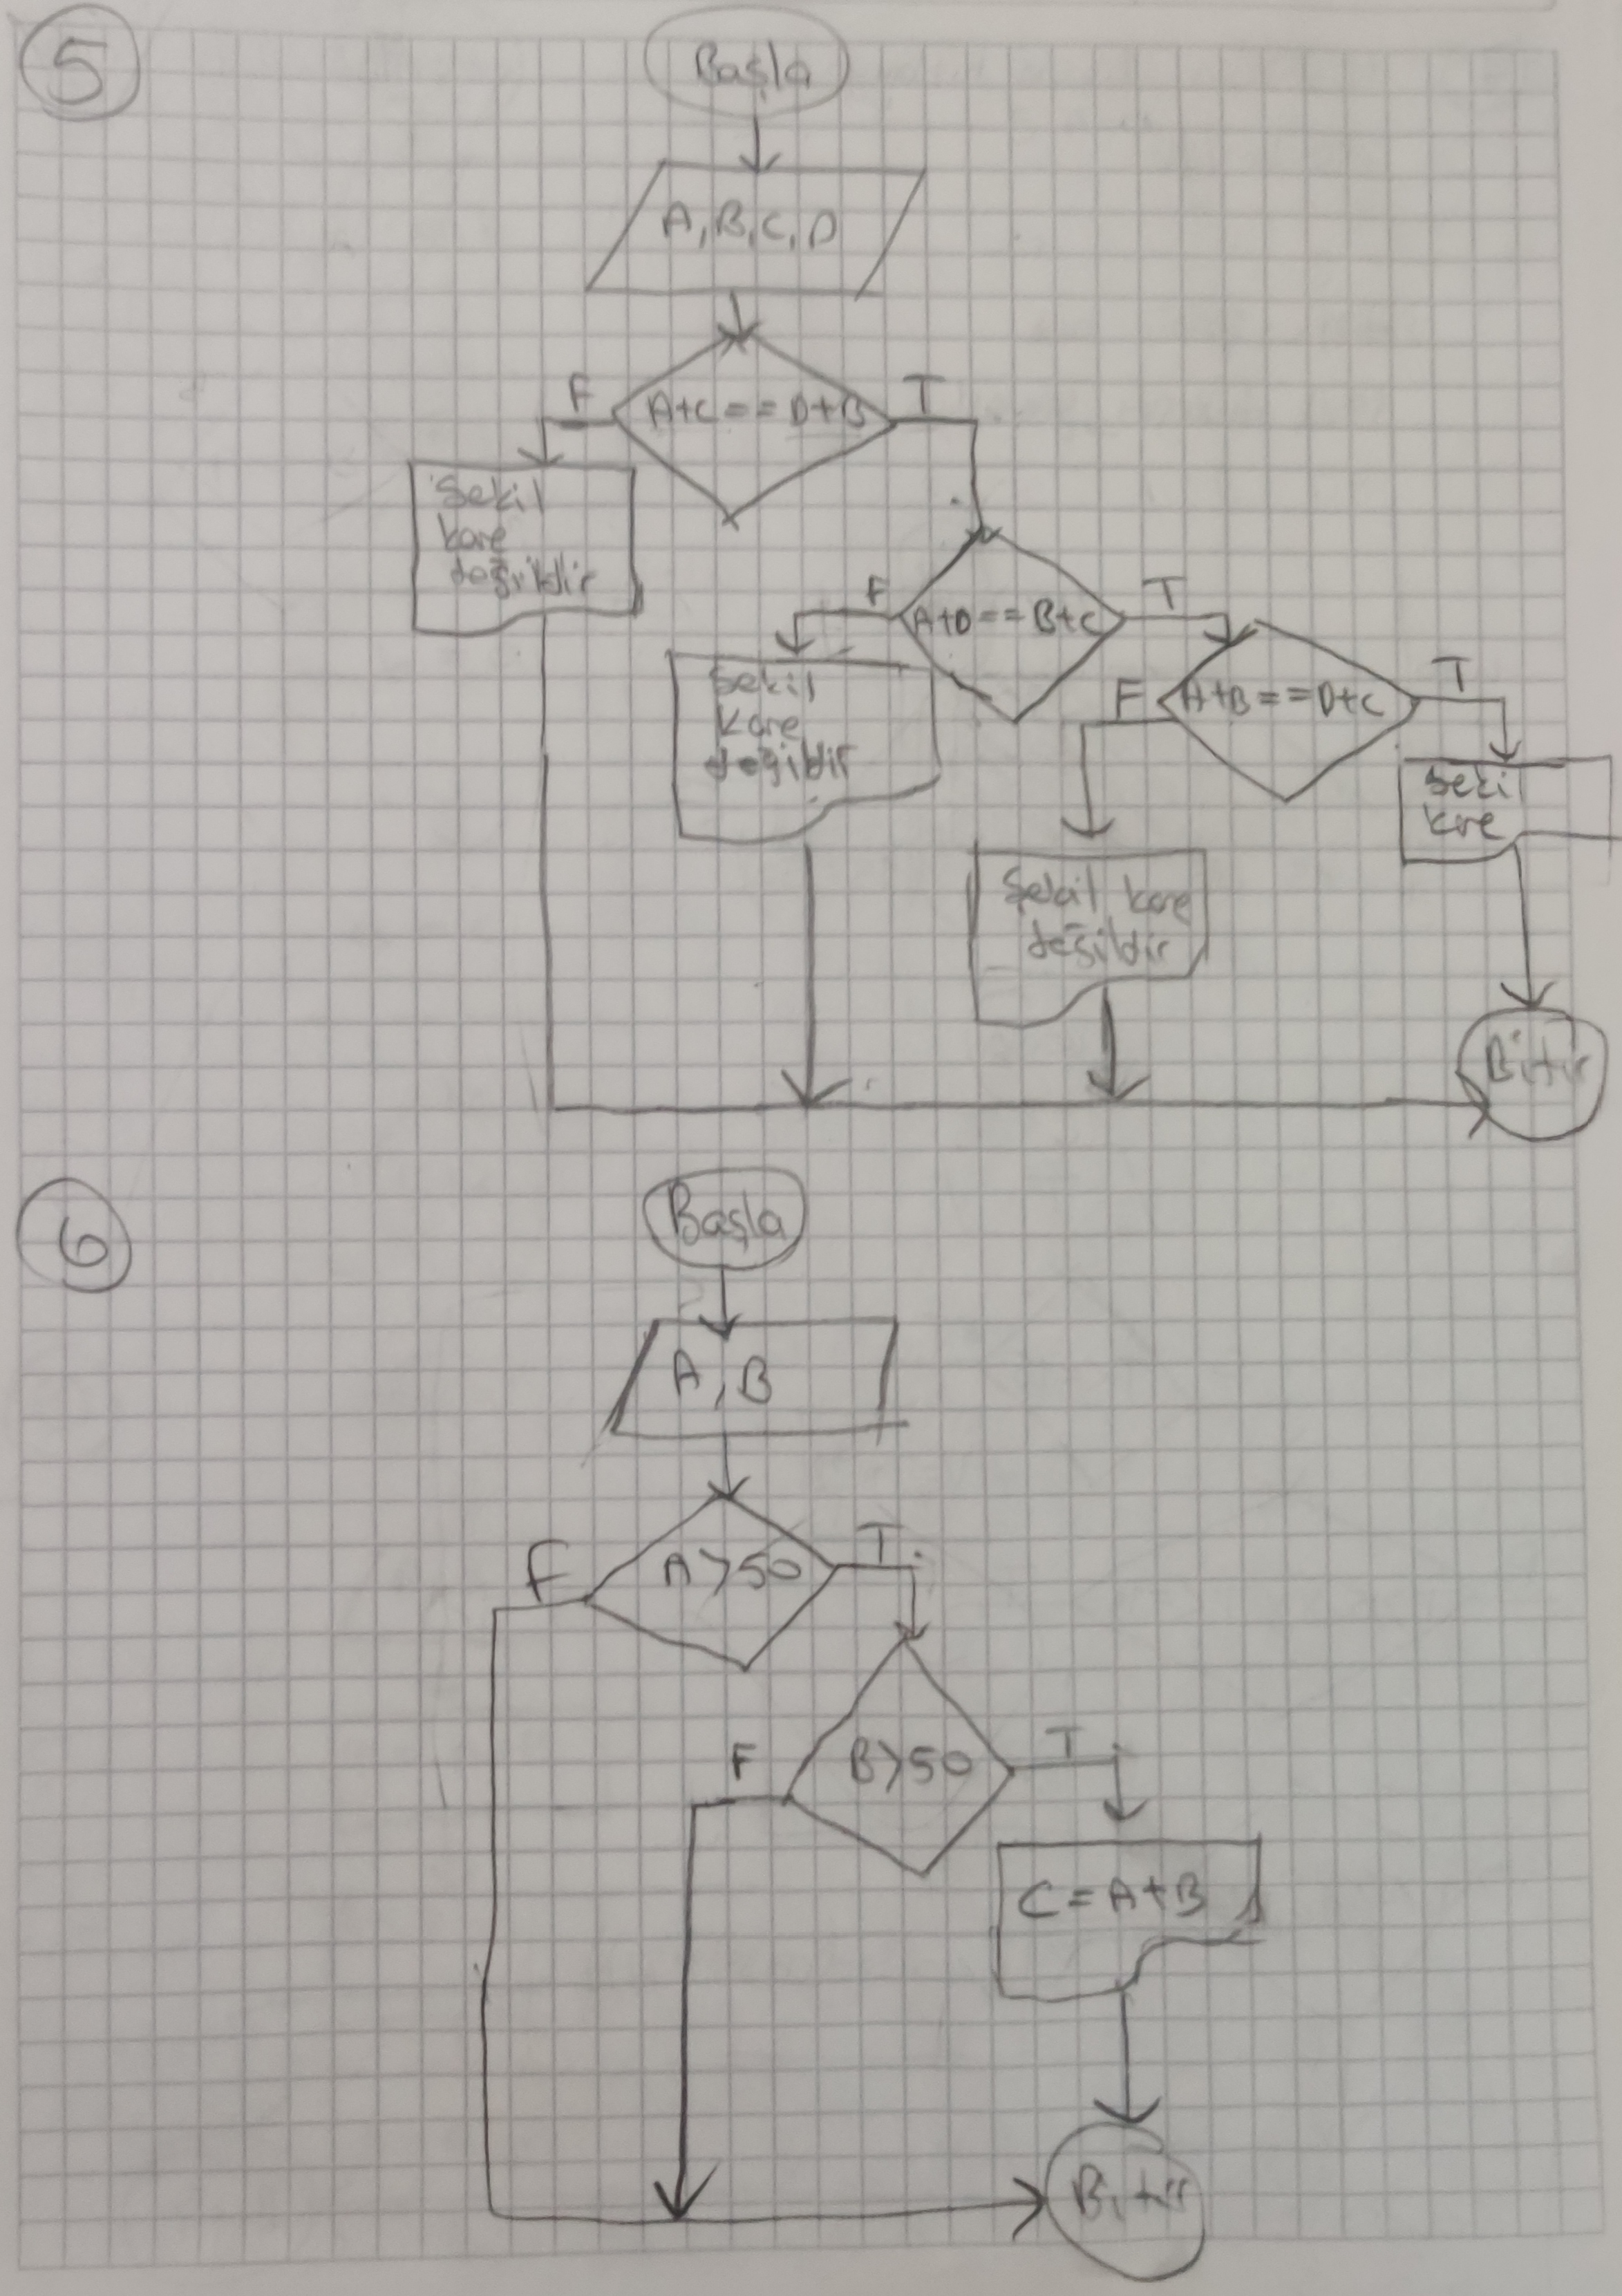 5
Başla
A, B, C, D
F
A+C==D+B
T
Şekil
kare
değildir
F
A+D==B+C
T
Şekil
kare
değildir
F
A+B==D+C
T
Şekil kare
değildir
Bitir
6
Başla
A, B
F
A>50
T
F
B>50
T
C=A+B
Bitir